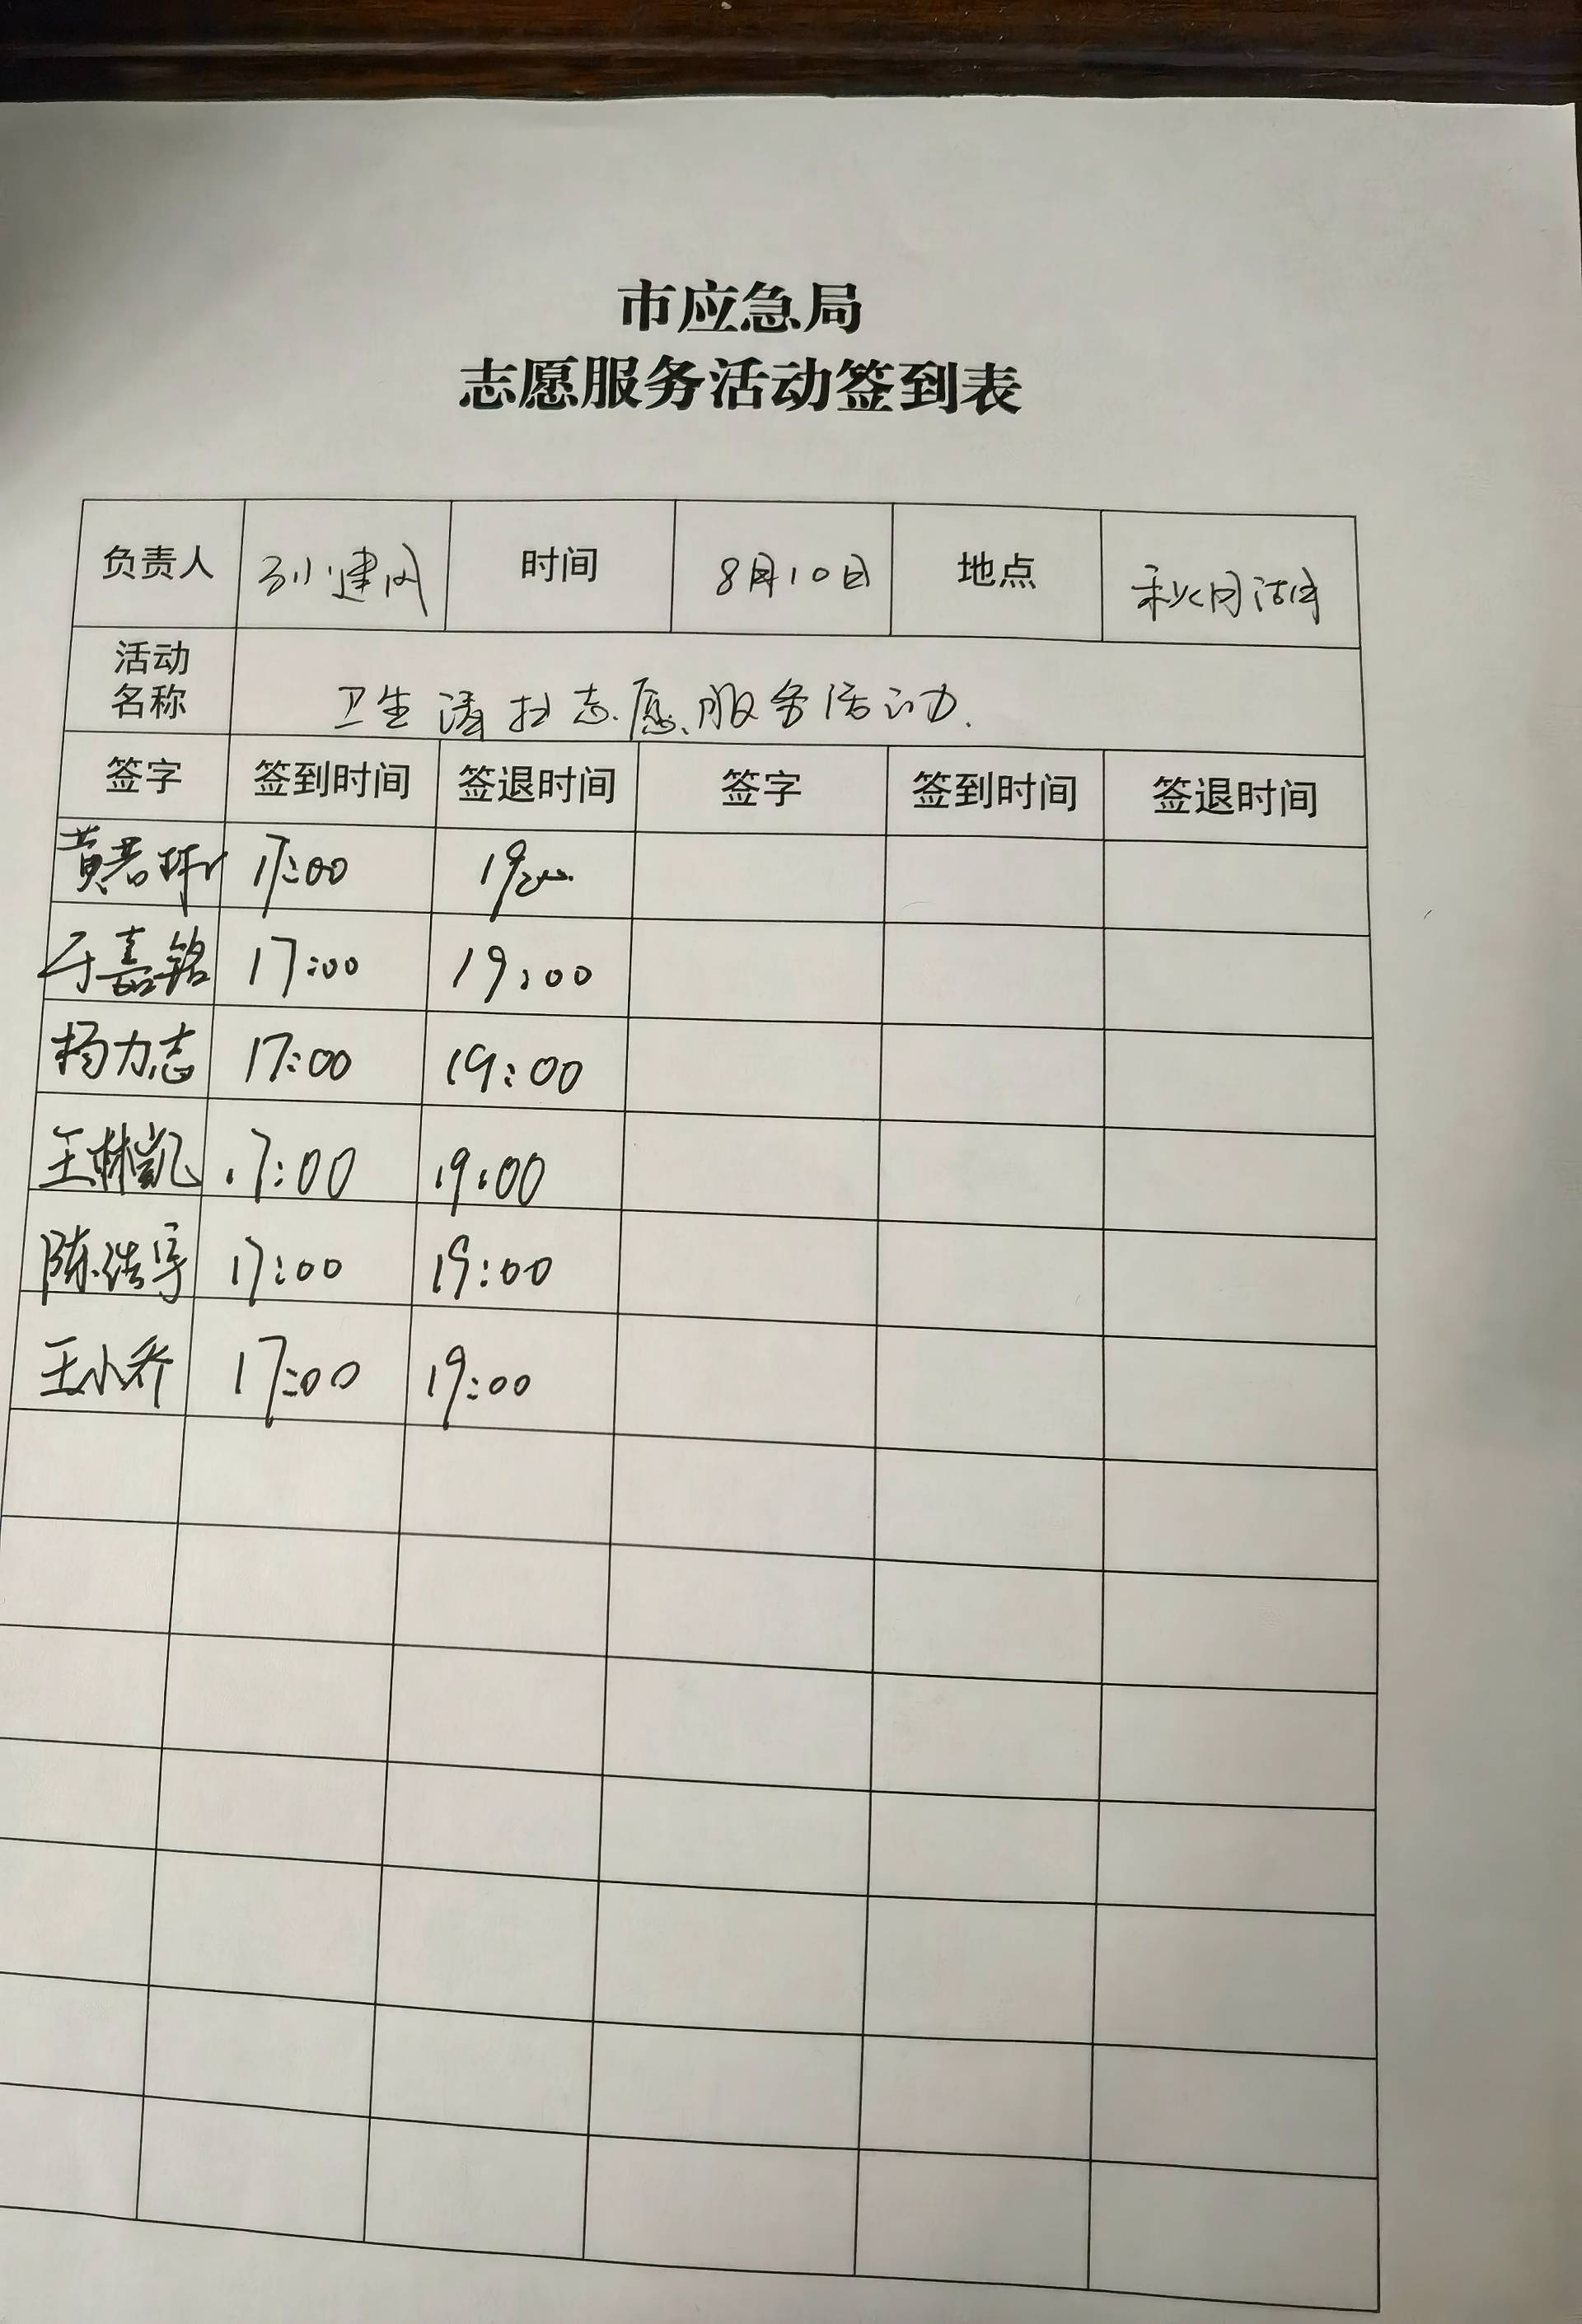 市应急局
志愿服务活动签到表
负责人 孙建 时间 8月10日 地点 秋月湖
活动名称 卫生清扫志愿服务活动.
签字 签到时间 签退时间 签字 签到时间 签退时间
黄若 17:00 19:00
于嘉铭 17:00 19:00
杨力志 17:00 19:00
王林凯 17:00 19:00
陈浩宇 17:00 19:00
王小乔 17:00 19:00